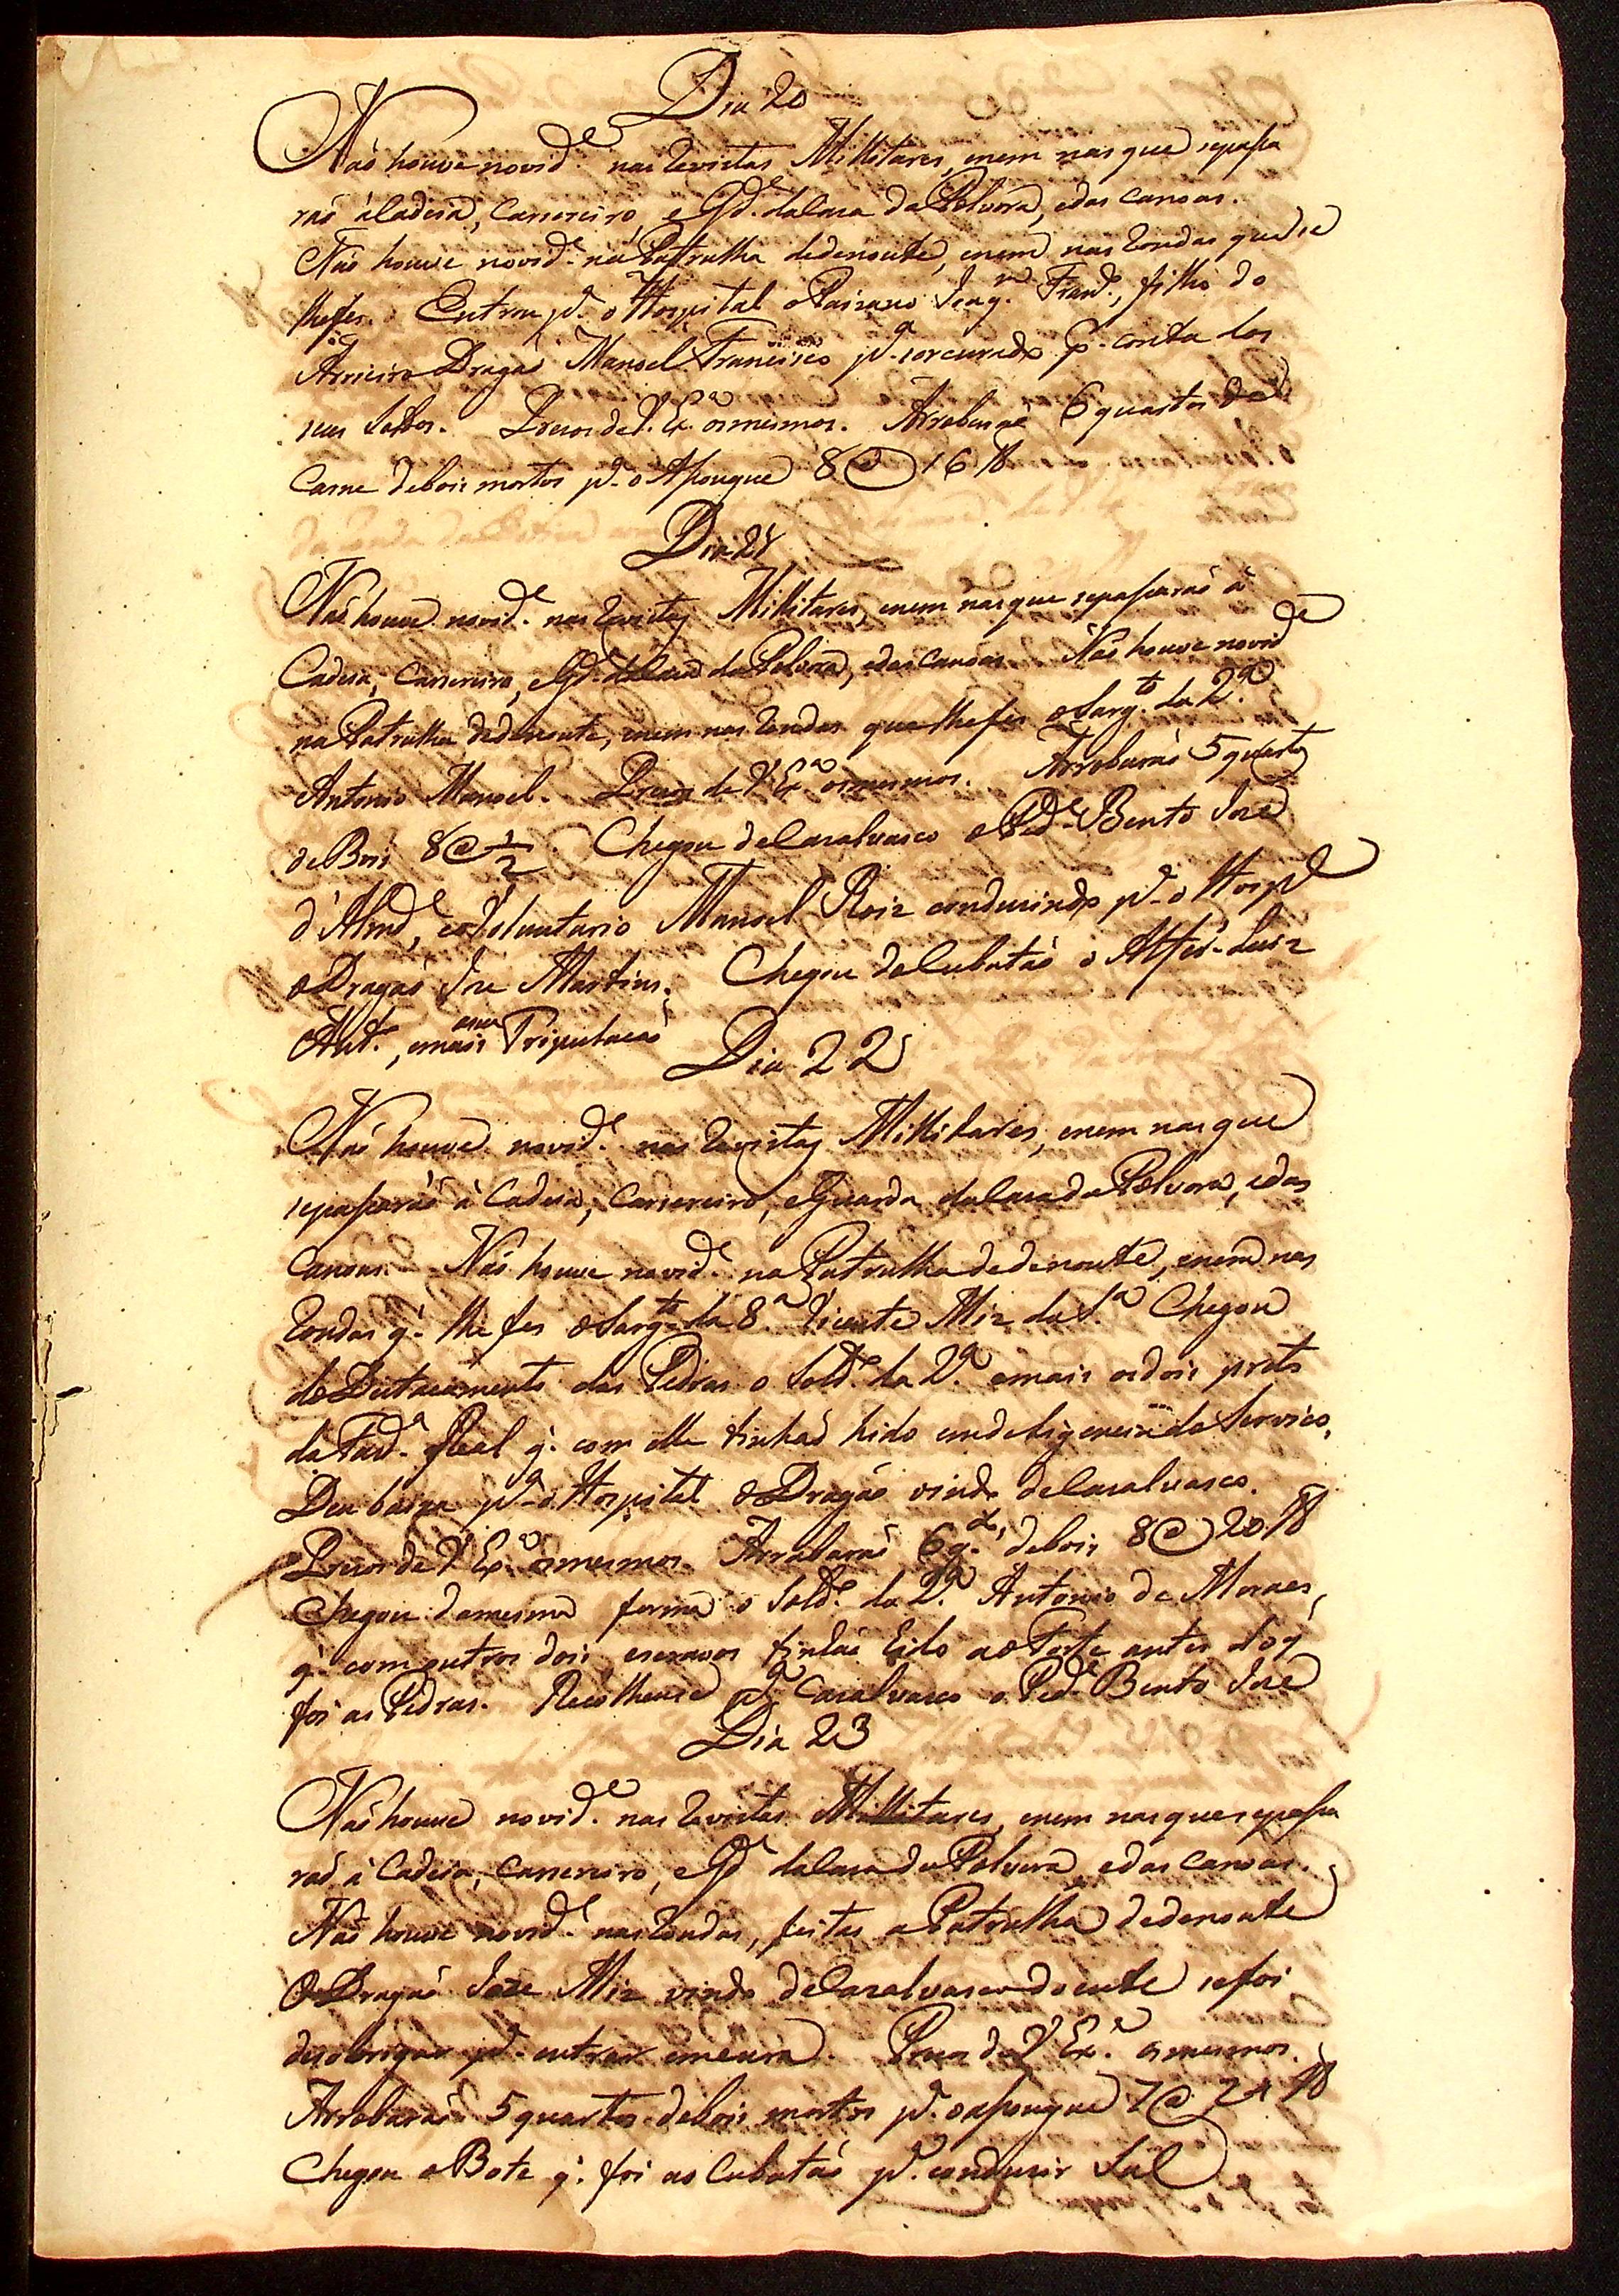 Dia 20
Não houve novid.e nas Revistas Millitares, enem nas que sepassa
rão áCadeia, Carsereiro, e Gd.e daCasa da Polvora, edas canoas.
Não houve novid.e na Patrulha dedenoute, enem nas Rondas que se
lhefes. Entrou p.a o Hospital oPaizano Joaq.m Fran.co, filho do
Arrieiro Dragão Manoel Francisco p.a sorcurado p.r conta dos
seus Soldos. Prezos deV. Ex.a osmesmos. Arrobarão 6 quartos de
Carne debois mortos p.a o Asougue 8 @ 16 lb
Dia 21
Não houve novid.e nas Revistas Millitares, enem nasque sepassarão á
Cadeia, Carsereiro, eGd.e daCasa da Polvora, edas canoas. Não houve novid.e
na Patrulha dedenoute, enem nas Rondas que lhefes oSarg.to da 2.a
Antonio Manoel. Prezos de V. Ex.a osmesmos. Arrobarão 5 quartos
de Bois 8 @ 1/2 Chegou deCasalvasco oPed.e Bento Jozé
d'Almd.a, eoVoluntario Manoel Roiz conduzindo p.a o Hosp.al
oDragão Joze Martins. Chegou deCubatão o Alfer.s Luiz
Ant.o, emais asua Tripulacão
Dia 22
Não houve novid.e nas Revistas Millitares, enem nas que
sepassarão á Cadeia, Carsereiro, eGuarda daCasa da Polvora, edas
Canoas. Não houve novid.e na Patrulha dedenoute, enem nas
Rondas q.e lhe fes oSarg.to da 8.a Vicente Miz da S.a Chegou
do Destacamento das Pedras o Sold.o da 2.a emais os dois pretos
da Fazd.a Real q.e com elle tinhão hido emdeligencia do Servico.
Deu baixa p.a o Hospital oDragão vindo deCasalvasco.
Prezos de V. Ex.a osmesmos. Arrobarão 6 q.tos debois 8 @ 20 lb
Chegou damesma forma o Sold.o da 2.a Antonio de Moraes,
q.e com outros dois escravos tinhão hido ao Forte antes do q.
foi as Pedras. Recolheuse p.a Casalvasco o Ped.e Bento Jozé
Dia 23
Não houve novid.e nas Revistas Millitares, enem nasque sepassa
rão á Cadeia, Carsereiro, eGd.e daCasa da Polvora, edas canoas.
Não houve novid.e nas Rondas, feitas a Patrulha dedenoute
O Dragão Joze Miz vindo deCasalvasco doente sefoi
desobrigar p.a entrar emcura. Prezos de V. Ex.a osmesmos.
Arrobarão 5 quartos debois mortos p.a oasougue 7 @ 24 lb
Chegou o Bote q.e foi ao Cubatão p.a conduzir Sal